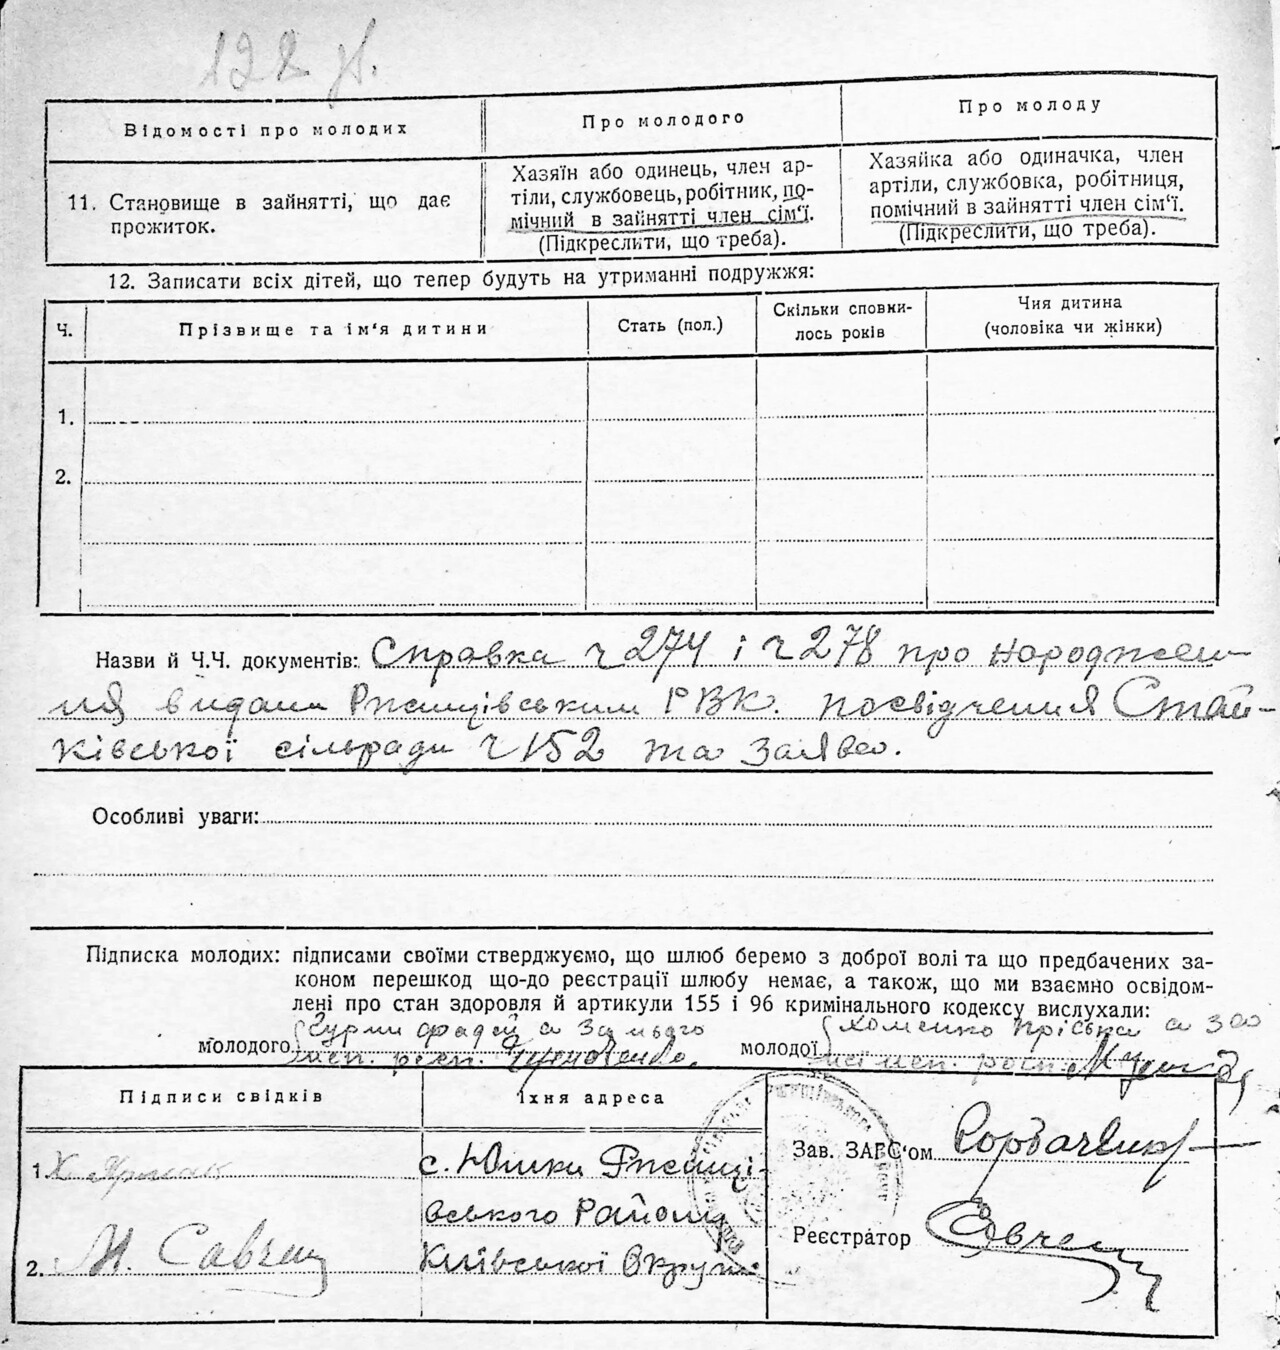 Відомості про молодих
Про молодого
Про молоду
11. Становище в зайнятті, що дає прожиток.
Хазяїн або одинець, член ар-
тіли, службовець, робітник, по-
мічний в зайнятті член сім'ї.
(Підкреслити, що треба).
Хазяйка або одиначка, член
артіли, службовка, робітниця,
помічний в зайнятті член сім'ї.
(Підкреслити, що треба).
12. Записати всіх дітей, що тепер будуть на утриманні подружжя:
Ч.
Прізвище та ім'я дитини
Стать (пол.)
Скільки сповни-
лось років
Чия дитина
(чоловіка чи жінки)
1.
2.
Назви й Ч.Ч. документів: Справка ч 274 і ч 278 про народжен-
ня видани Ржищівським РВК. посвідчення Стай-
ківської сільради ч 152 та заяво.
Особливі уваги:
Підписка молодих: підписами своїми стверджуємо, що шлюб беремо з доброї волі та що предбачених за-
коном перешкод що-до реєстрації шлюбу немає, а також, що ми взаємно освідом-
лені про стан здоровля й артикули 155 і 96 кримінального кодексу вислухали:
молодого фадей а за нього
молодої Хоменко Пріська а за
Підписи свідків
Їхня адреса
1.
с. Юшки Ржищі-
вського Району
Київської Округи
2. М. Савчен
Зав. ЗАГС'ом
Реєстратор